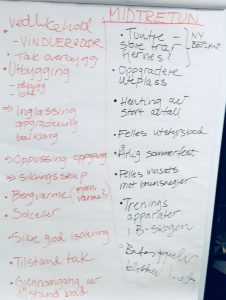 vedlikehold
- VINDUERDØR
- Tak overbygg
Utbygging
- påbygg
- loft
→ Innglassing
oppgradering
balkong
→ Oppussing oppgang
→ Sikringsskap
• Bergvarme
• Solceller
• Sikre god isolering
• Tilstand tak
• Gjennomgang av
tilstand bad
MIDTRETUN
• Tomte -
store trær
fjernes?
NY
BEPLANT
• Oppgradere
uteplass
• Henting av
stort avfall
• Felles utstyrsbod
• Årlig sommerfest
• Felles innsats
mot brunsnegler
• Trenings
apparater
i B-skogen